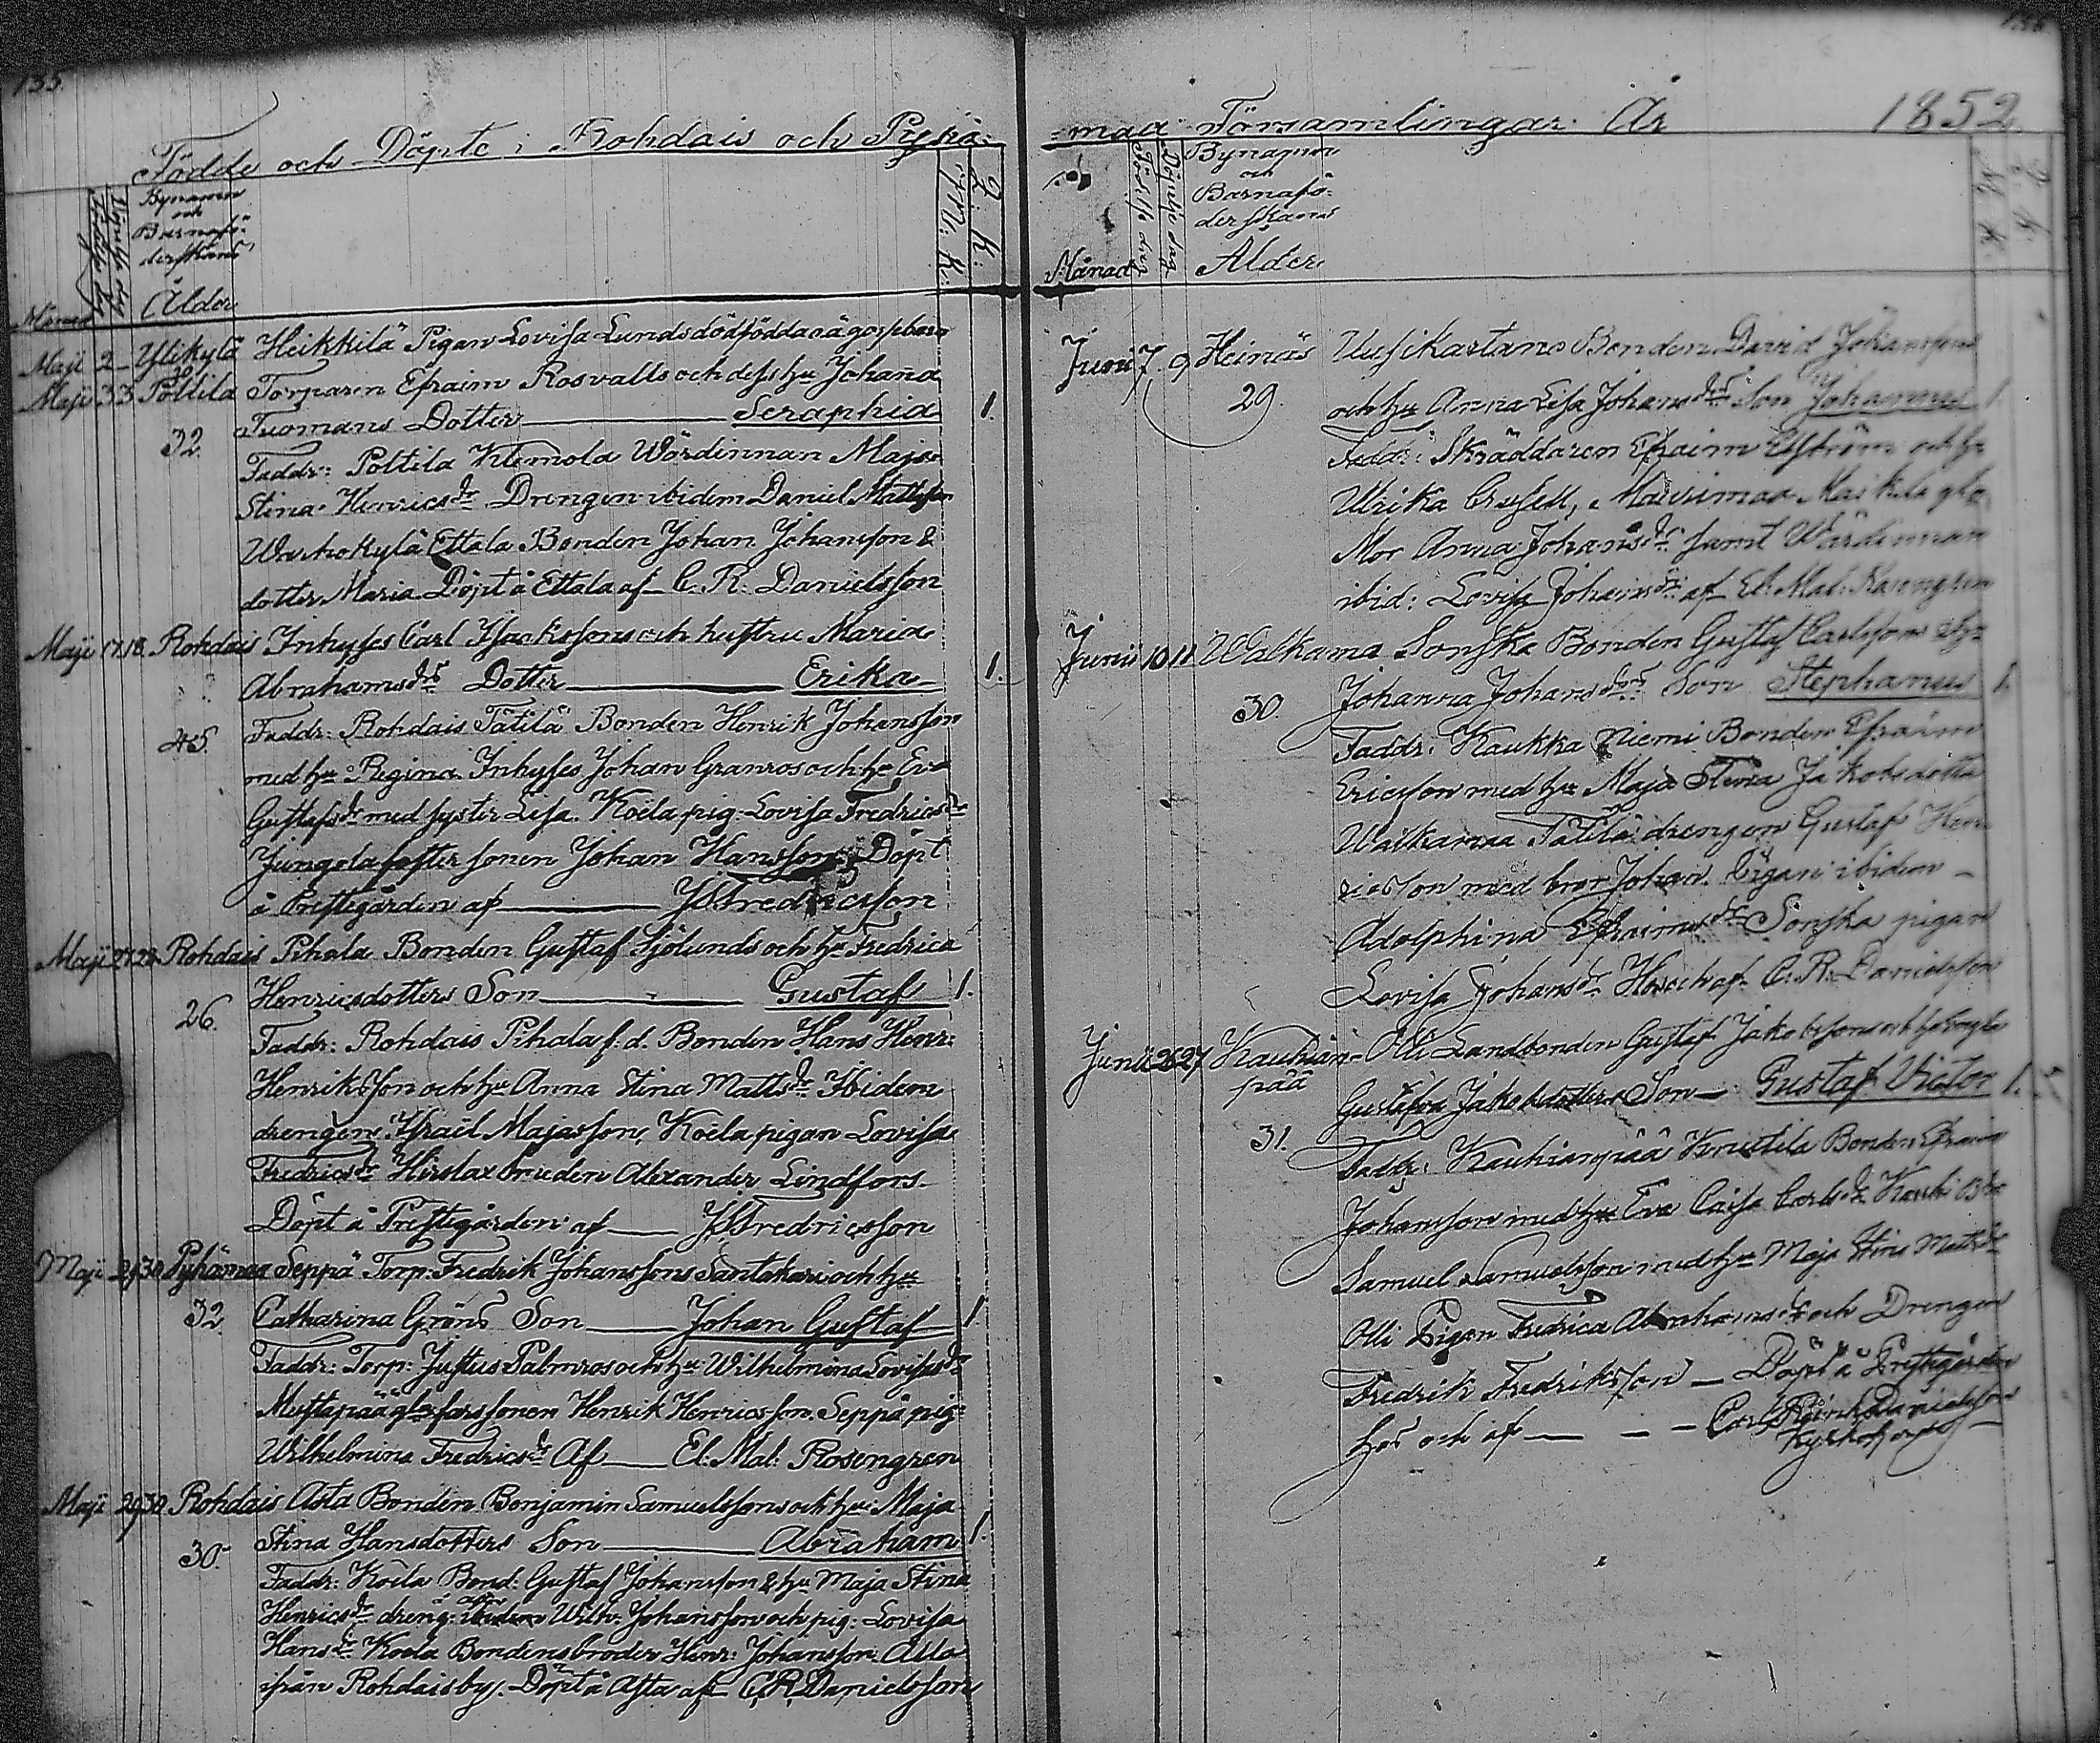 135.
Födde och Döpte i Rohdais och Pyhä-
Månad
Födelse dag
Döpelse dag
Bynamn
och
Barnafö-
derskans
Ålder
M. K.
Q. K.
Maji 2 Ylikylä Heikkilä Pigan Lovisa Lunds dödfödda oä gossebarn
Maji 3 3 Poltila Torparen Efraim Rosvalls och dess hu Johana
Tuomans Dotter — Seraphia 1.
32. Faddr: Poltila Klemola Wärdinnan Maja
Stina Henricsdr Drengen ibidem Daniel Mattsson
Warhokylä Ettala Bonden Johan Johansson &
dotter Maria Döpt å Ettala af C. R. Danielsson
Maji 17. 18. Rohdais Inhyses Carl Isackssons och hustru Maria
Abrahamsdrs Dotter — Erika 1.
45. Faddr: Rohdais Tätilä Bonden Henrik Johansson
med hu Regina Inhyses Johan Granros och hu Eva
Gustafsdr med syster Lisa. Koela pig: Lovisa Fredricsdr
Jungola foster sonen Johan Hansson Döpt
å Prestegården af — JFredricsson
Maji 27. 28. Rohdais Pihala Bonden Gustaf Sjölunds och hu Fredrica
Henricsdotters Son — Gustaf 1.
26. Faddr: Rohdais Pihala f. d. Bonden Hans Henr:
Henriksson och hu Anna Stina Mattsdr Ibidem
drengen Israel Majasson, Koela pigan Lovisa
Fredricsdr Hirslax bruden Alexander Lindfors
Döpt å Prestegården af — JFredricsson
Maji 29 30 Pyhämaa Seppä Torp. Fredrik Johanssons Santakari och hu
32. Catharina Gröns Son — Johan Gustaf 1
Faddr: Torp: Justus Palmros och hu Wilhelmina Lovisasdr
Mustapää gla farssonen Henrik Henricsson. Seppä pig:
Wilhelmina Fredricsdr Af — El: Mal: Rosengren
Maji 29 30 Rohdais Asta Bonden Benjamin Samuelssons och hu Maja
Stina Hansdotters Son — Abraham 1.
30. Faddr: Koela Bond: Gustaf Johansson & hu Maja Stina
Henricsdr dreng: Wilh. Johansson och pig: Lovisa
Hansdr Koela Bondens broder Henr: Johansson. Alla
ifrån Rohdais by. Döpt å Asta af C R Danielsson
maa Församlingar År 1852
Månad
Födelse dag
Döpelse dag
Bynamn
och
Barnafö-
derskans
Ålder
M. K.
Q. K.
Junii 7. 9 Heinäs Uusikartano Bonden David Johanssons
29. och hu Anna Lisa Johansdrs Son Johannes 1
Faddr: Skräddaren Efraim Elfström och hu
Ulrika Maurimaa gla
Mor Anna Johansdr samt Wärdinnan
ibid: Lovisa Johansdr af El. Mal: Rosengren
Junii 10 11 Walkama Sonska Bonden Gustaf Carlsson & hu
Johanna Johansdrs Son Stephanus 1.
30. Faddr. Kaukka Niemi Bonden Efraim
Ericsson med hu Maja Stina Jakobsdotter
Walkamaa Tätilä drengen Gustaf Hen-
ricsson med bror Johan. Pigan ibidem
Adolphina Efraimsdr Sonska pigan
Lovisa Johansdr Hos och af C. R. Danielsson
Junii 26 27 Kauhian- Olli Landbonden Gustaf Jakobssons och hu
pää Gustafva Jakobsdotters Son — Gustaf Victor 1.
31. Faddr: Kauhianpää Knuutila Bonden Efraim
Johansson med hu Eva Caisa Carlsdr
Samuel Samuelsson med hu Maja Stina Mattsdr
Olli Pigan Fredrica Abrahamsdr och Drengen
Fredrik Fredriksson — Döpt å Prestegården
hos och af — — — Carl Danielsson